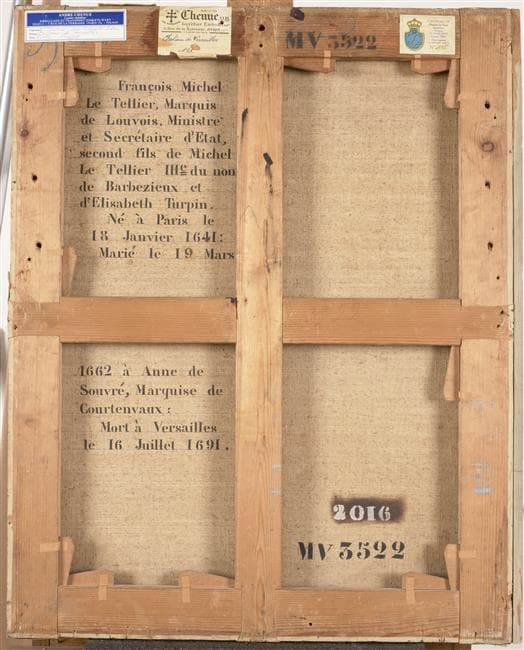 ANDRÉ CHENUE
Chenue
MV 3522
François Michel
Le Tellier, Marquis
de Louvois, Ministre
et Secrétaire d'Etat,
second fils de Michel
Le Tellier IIIe du nom
de Barbezieux et
d'Elisabeth Turpin.
Né à Paris le
18 Janvier 1641:
Marié le 19 Mars
1662 à Anne de
Souvré, Marquise de
Courtenvaux:
Mort à Versailles
le 16 Juillet 1691.
2016
MV 3522